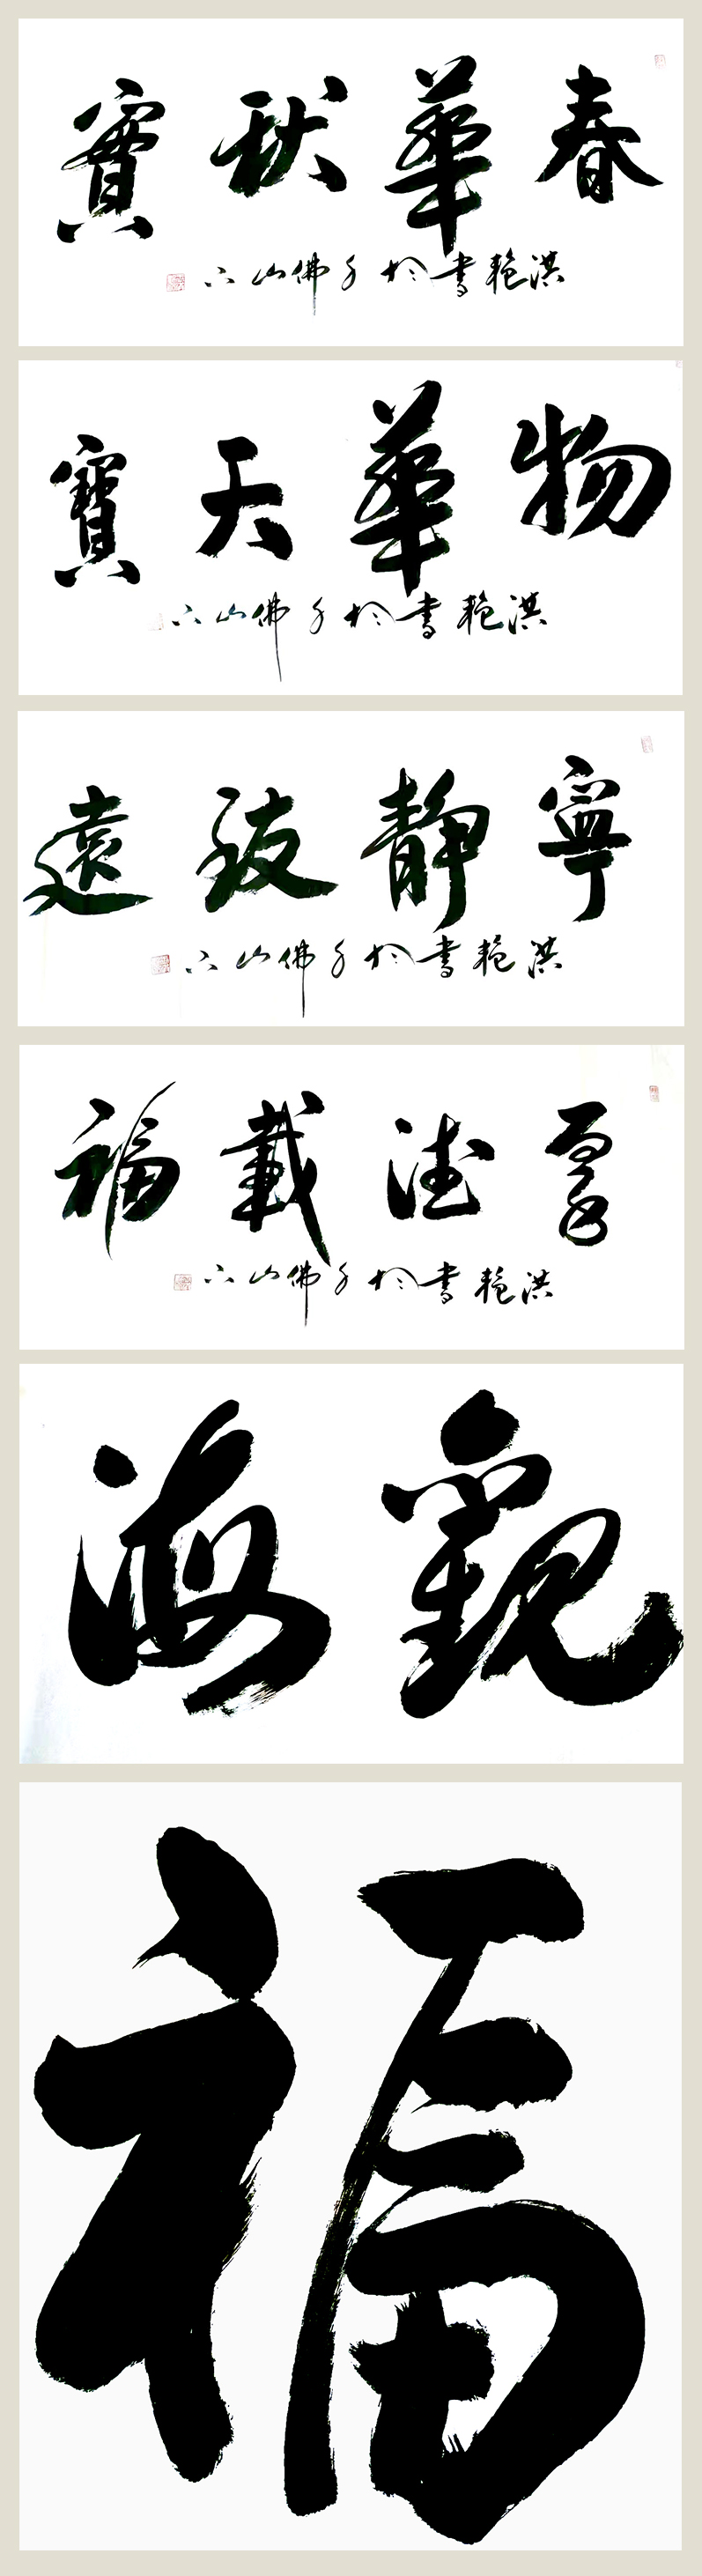 春華秋實
洪艳書於千佛山下
物華天寶
洪艳書於千佛山下
寧静致遠
洪艳書於千佛山下
厚德載福
洪艳書於千佛山下
觀海
福